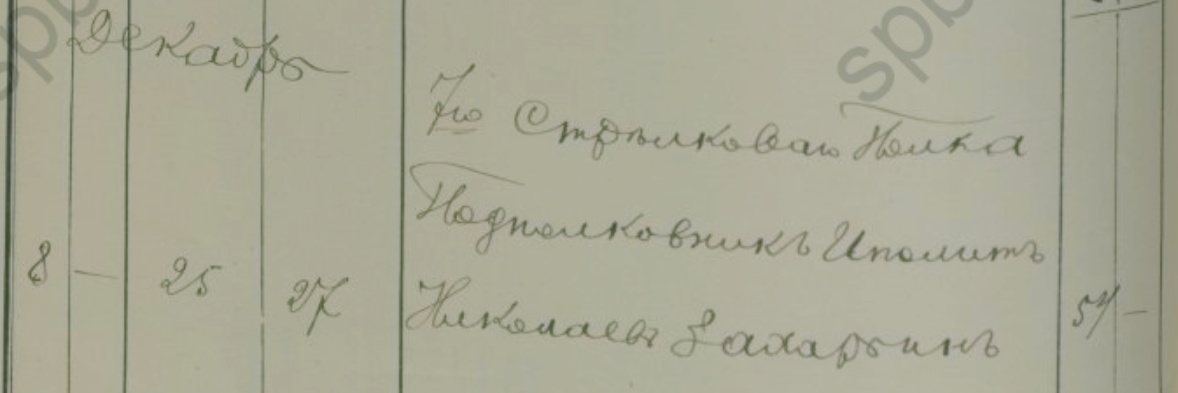 Декабрь
7го Стрѣлковаго Полка
Подполковникъ Иполитъ
8 — 25 27 Николаевъ Захарьинъ 57 —